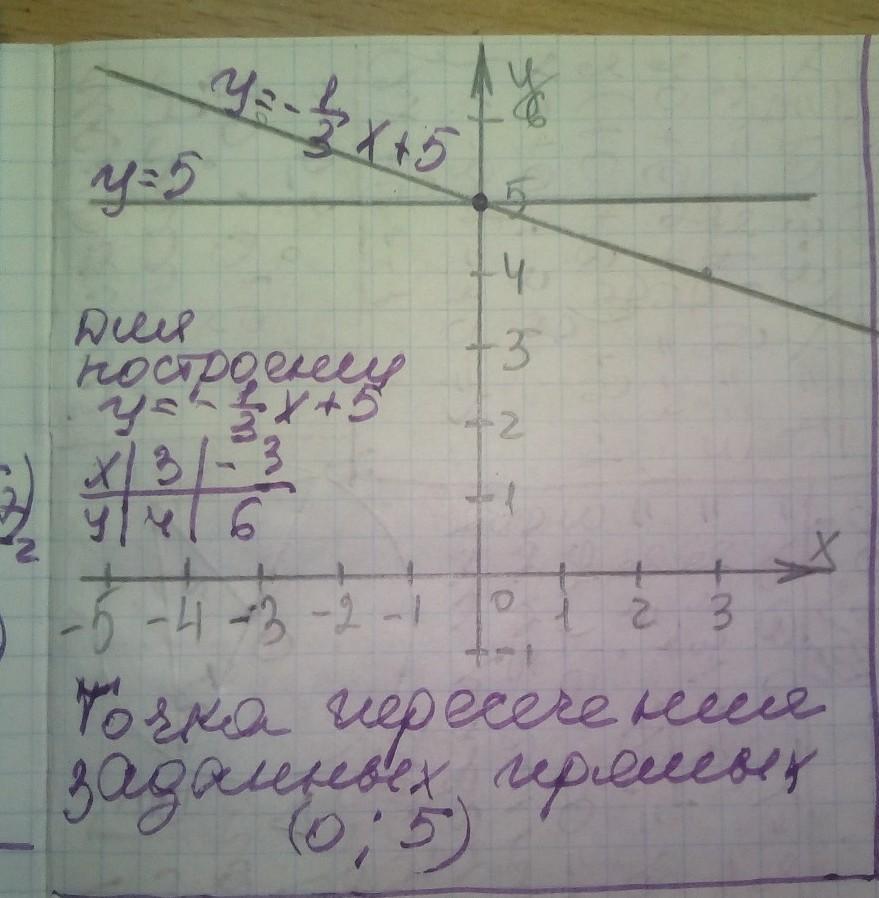 y
6
y = -1/3 x + 5
y = 5
5
4
Для
построения
y = -1/3 x + 5
3
2
x | 3 | -3
y | 4 | 6
1
x
-5 -4 -3 -2 -1 0 1 2 3
-1
Точка пересечения
заданных прямых
(0 ; 5)